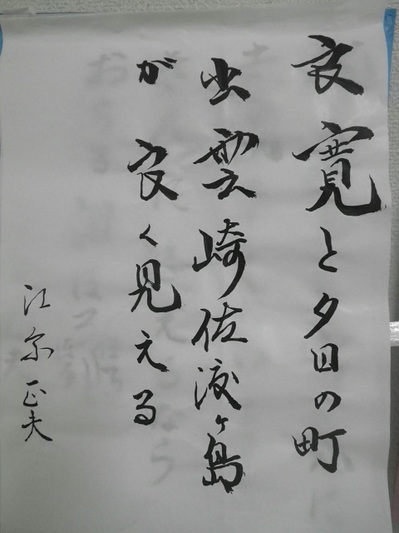 良寛と夕日の町
出雲崎佐渡ヶ島
が良く見える
江尔正夫